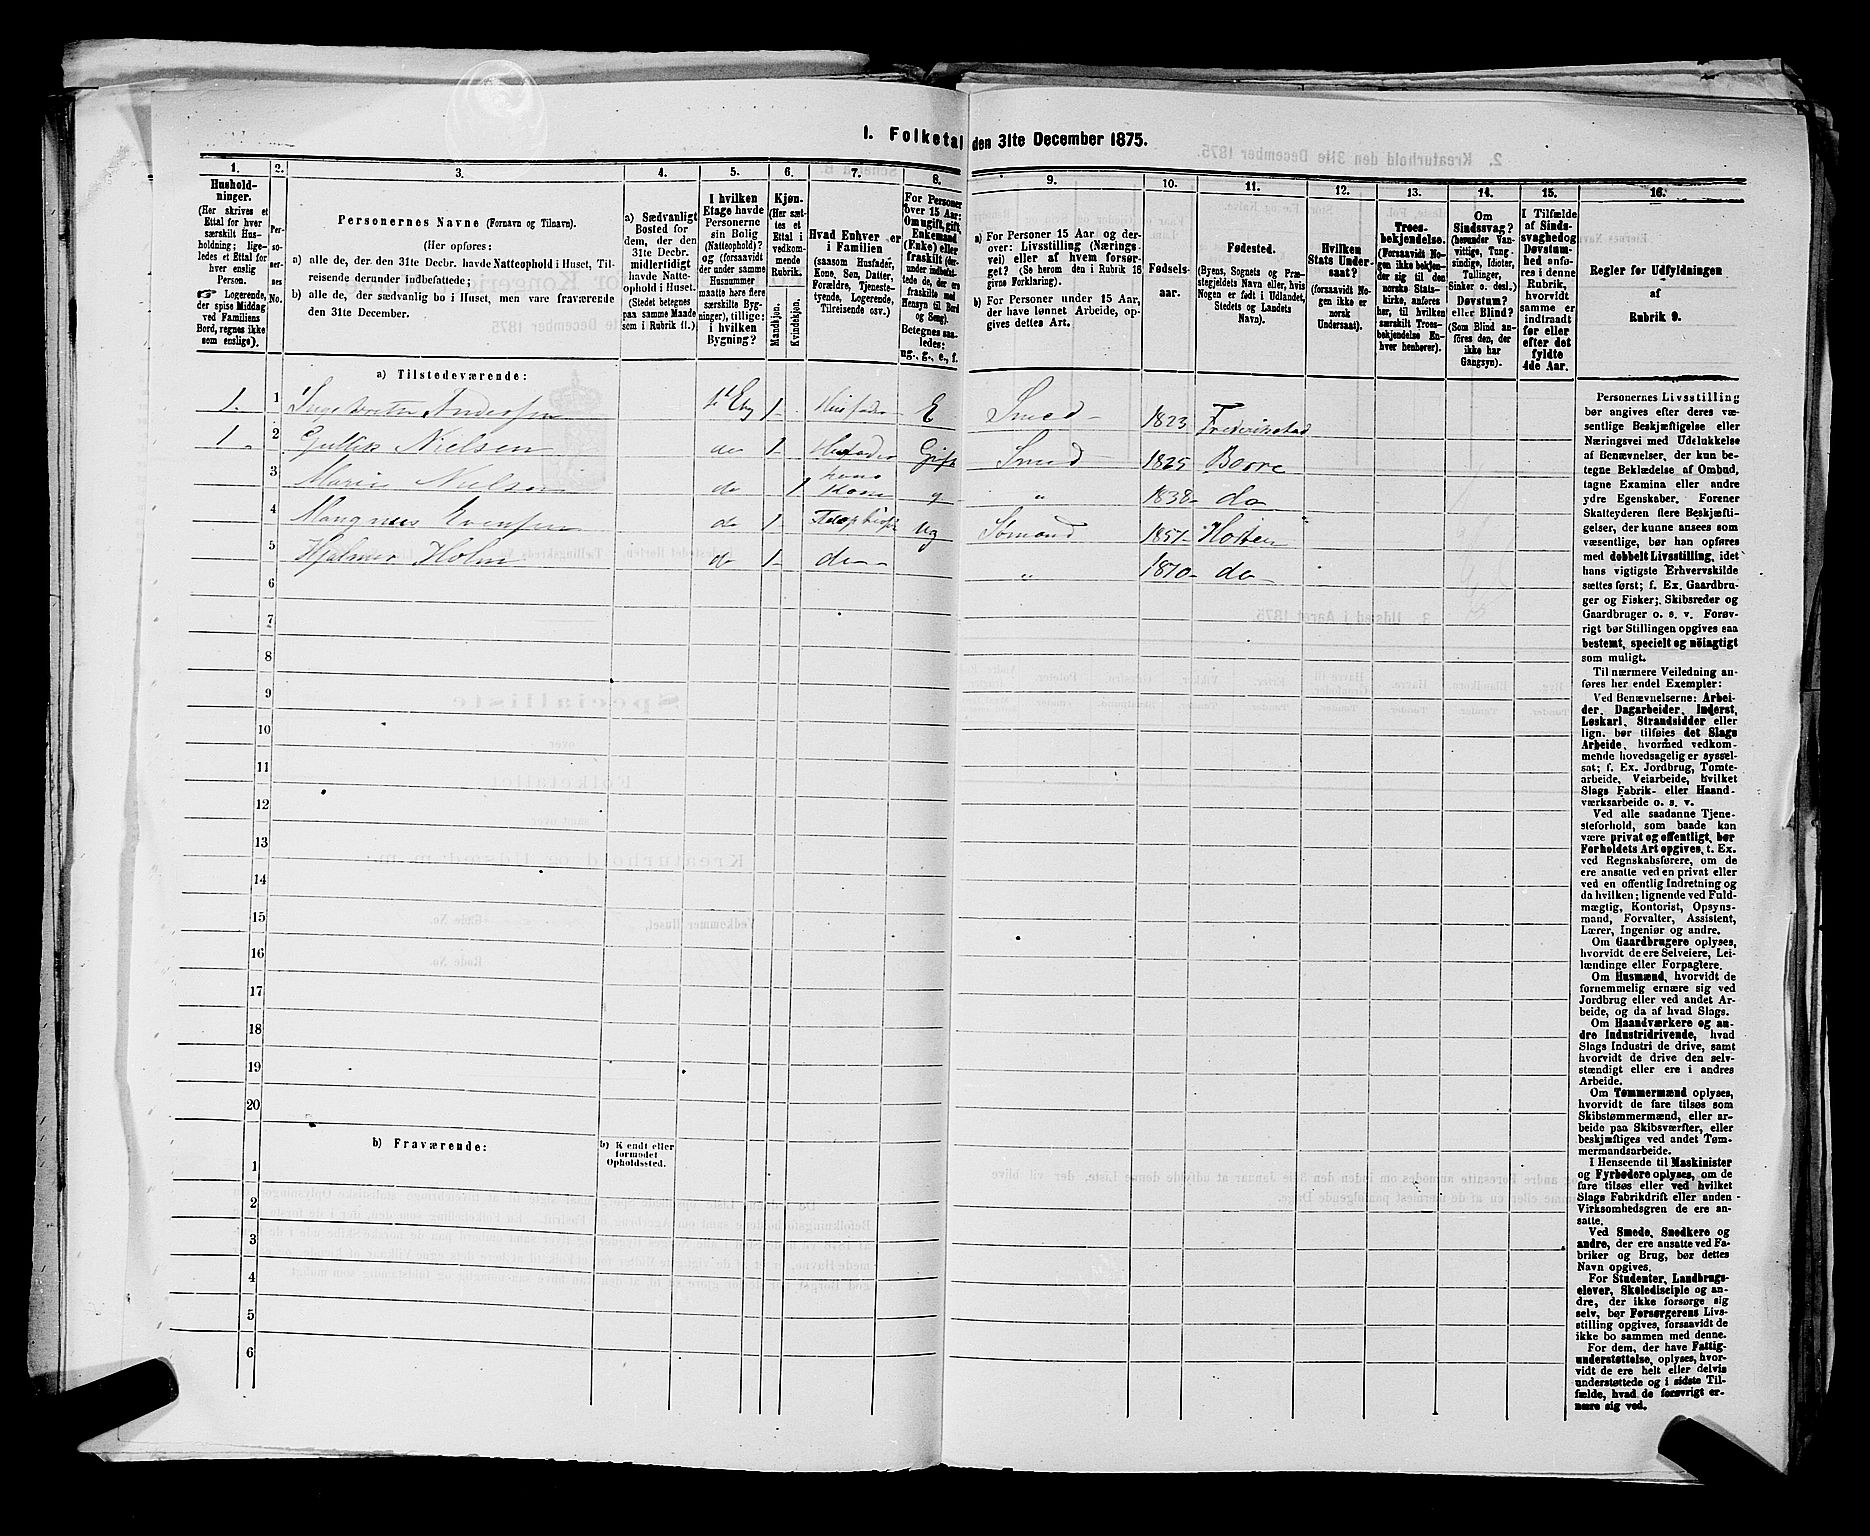 1. Folketal den 31te December 1875.
1.
Hushold-
ninger.
(Her skrives et
Ettal for hver
særskilt Hus-
holdning; lige-
ledes et Ettal for
hver enslig
Person.
Logerende,
der spise Middag
ved Familiens
Bord, regnes ikke
som enslige).
2.
Per-
so-
ner-
nes
No.
3.
Personernes Navne (Fornavn og Tilnavn).
(Her opføres:
a) alle de, der den 31te Decbr. havde Natteophold i Huset, Til-
reisende derunder indbefattede;
b) alle de, der sædvanlig bo i Huset, men vare fraværende
den 31te December.
4.
a) Sædvanligt
Bosted for
dem, der den
31te Decbr.
midlertidigt
havde Natte-
ophold i Huset.
(Stedet betegnes
paa samme Maade
som i Rubrik 11.)
5.
I hvilken
Etage havde
Personerne
sin Bolig
(Natteophold)?
og (forsaavidt
der under samme
Husnummer
maatte høre flere
særskilte Byg-
ninger), tillige:
i hvilken
Bygning?
6.
Kjøn.
(Her sæt-
tes et
Ettal i
vedkom-
mende
Rubrik.
Mandkjøn.
Kvindekjøn.
7.
Hvad Enhver er
i Familien
(saasom Husfader,
Kone, Søn, Datter,
Forældre, Tjeneste-
tyende, Logerende,
Tilreisende osv.)
8.
For Personer
over 15 Aar:
Om ugift, gift,
Enkemand
(Enke) eller
fraskilt (der-
under indbefat-
tede de, der ere
fraskilte med
Hensyn til Bord
og Seng).
Betegnes saa-
ledes:
ug., g., e., f.
9.
a) For Personer 15 Aar og der-
over: Livsstilling (Nærings-
vei) eller af hvem forsør-
get? (Se herom den i Rubrik 16
givne Forklaring).
b) For Personer under 15 Aar,
der have lønnet Arbeide, op-
gives dettes Art.
10.
Fødsels-
aar.
11.
Fødested.
(Byens, Sognets og Præ-
stegjeldets Navn, eller, hvis
Nogen er født i Udlandet,
Stedets og Landets
Navn).
12.
Hvilken
Stats Under-
saat?
(forsaavidt No-
gen ikke er
norsk
Undersaat).
13.
Troes-
bekjendelse.
(Forsaavidt No-
gen ikke bekjen-
der sig til den
norske Stats-
kirke, anføres
her, til hvilken
særskilt Troes-
bekjendelse En-
hver henhører).
14.
Om
Sindssvag?
(herunder Van-
vittige, Tung-
sindige, Idioter,
Tullinger,
Sinker o. desl.)
Døvstum?
eller Blind?
(Som Blind an-
føres den, der
ikke har
Gangsyn).
15.
I Tilfælde
af Sinds-
svaghed og
Døvstum-
hed anfø-
res i denne
Rubrik,
hvorvidt
samme er
indtraadt
før eller
efter det
fyldte
4de Aar.
16.
Regler for Udfyldningen
af
Rubrik 9.
a) Tilstedeværende:
1. 1 Andersen 1 Husfader E Smed 1823 Frederikstad
1 2 Gullik Nielsen do 1 Gift Smed 1825 Borre
3 Marie Nielsen do 1 hans Kone g " 1838 do
4 Mangnus Evensen do 1 ug Sømand 1857 Horten
5 Hjalmer Holm do 1 do " 1870 do
6
7
8
9
10
11
12
13
14
15
16
17
18
19
20
b) Fraværende:
b) Kjendt eller
formodet
Opholdssted.
1
2
3
4
5
6
Personernes Livsstilling
bør angives efter deres væ-
sentlige Beskjæftigelse eller
Næringsvei med Udelukkelse
af Benævnelser, der kun be-
tegne Beklædelse af Ombud,
tagne Examina eller andre
ydre Egenskaber. Forener
Skatteyderen flere Beskjæfti-
gelser, der kunne ansees som
væsentlige, bør han opføres
med dobbelt Livsstilling, idet
hans vigtigste Erhvervskilde
sættes først; f. Ex. Gaardbru-
ger og Fisker; Skibsreder og
Gaardbruger o. s. v. Forøv-
rigt bør Stillingen opgives saa
bestemt, specielt og nøiagtigt
som muligt.
Til nærmere Veiledning an-
føres her endel Exempler:
Ved Benævnelserne: Arbei-
der, Dagarbeider, Inderst,
Løskarl, Strandsidder eller
lign. bør tilføies det Slags
Arbeide, hvormed vedkom-
mende hovedsagelig er syssel-
sat; f. Ex. Jordbrug, Tomte-
arbeide, Veiarbeide, hvilket
Slags Fabrik- eller Haand-
værksarbeide o. s. v.
Ved alle saadanne Tjene-
steforhold, som baade kan
være privat og offentligt, bør
Forholdets Art opgives, t. Ex.
ved Regnskabsførere, om de
ere ansatte ved en privat eller
ved en offentlig Indretning og
da hvilken; lignende ved Fuld-
mægtig, Kontorist, Opsyns-
mand, Forvalter, Assistent,
Lærer, Ingeniør og andre.
Om Gaardbrugere oplyses,
hvorvidt de ere Selveiere, Lei-
lændinge eller Forpagtere.
Om Husmænd, hvorvidt de
fornemmelig ernære sig ved
Jordbrug eller ved andet Ar-
beide, og da af hvad Slags.
Om Haandværkere og an-
dre Industridrivende, hvad
Slags Industri de drive, samt
hvorvidt de drive den selv-
stændigt eller ere i andres
Arbeide.
Om Tømmermænd oplyses,
hvorvidt de fare tilsøs som
Skibstømmermænd, eller ar-
beide paa Skibsværfter, eller
beskjæftiges ved andet Tøm-
mermandsarbeide.
I Henseende til Maskinister
og Fyrbødere oplyses, om de
fare tilsøs eller ved hvilket
Slags Fabrikdrift eller anden
Virksomhedsgren de ere an-
satte.
Ved Smede, Snedkere og
andre, der ere ansatte ved Fa-
briker og Brug, bør dettes
Navn opgives.
For Studenter, Landbrugs-
elever, Skoledisciple og an-
dre, der ikke forsørge sig
selv, bør Forsørgerens Livs-
stilling opgives, forsaavidt de
ikke bo sammen med denne.
For dem, der have Fattig-
understøttelse, oplyses, hvor-
vidt de ere helt eller delvis
understøttede og i sidste Til-
fælde, hvad de forøvrigt er-
nære sig ved.